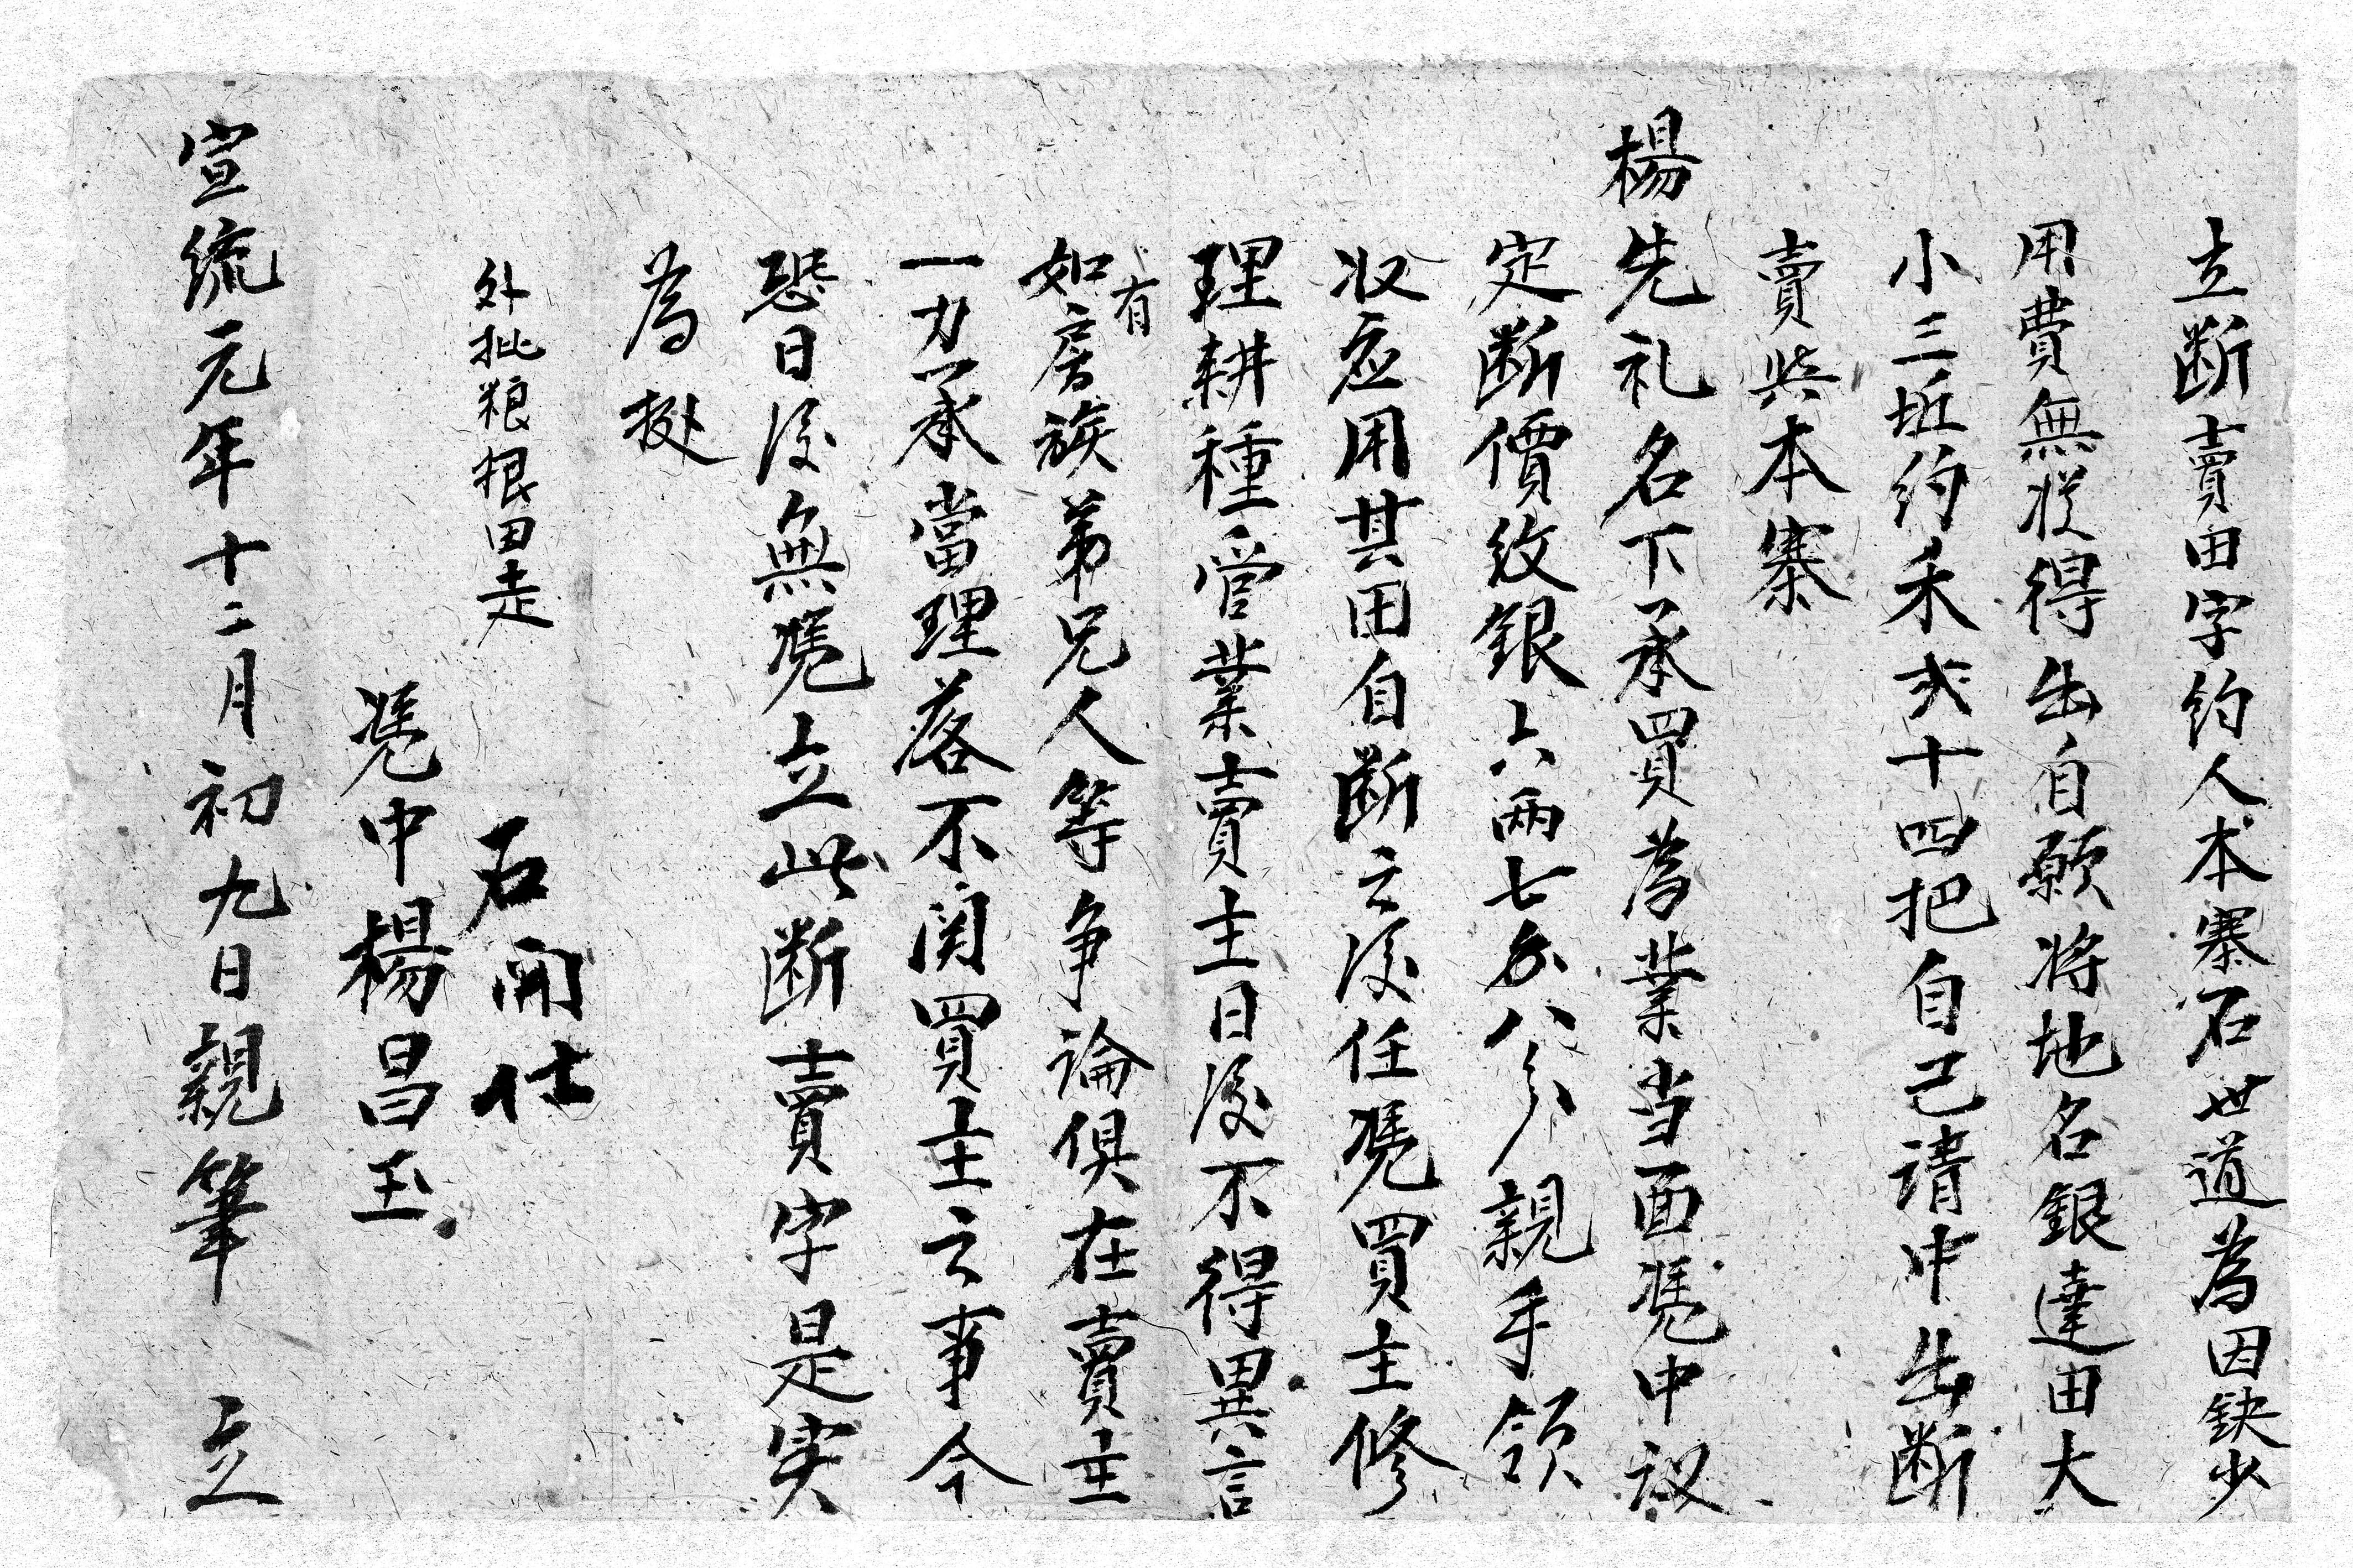 立断賣田字約人本寨石世道為因缺少
用費無従得出自願将地名銀達田大
小三坵約禾弍十四把自己请中出断
賣與本寨
楊先礼名下承買為業当面凴中议
定断價紋銀六两七分八分親手領
收应用其田自断之後任凴買主修
理耕種管業賣主日後不得異言
如有房族弟兄人等争論俱在賣主
一力承當理落不関買主之事今
恐日後無凴立此断賣字是实
為拠
外批粮根田走
石開仕
凴中楊昌玉
宣統元年十二月初九日親筆 立